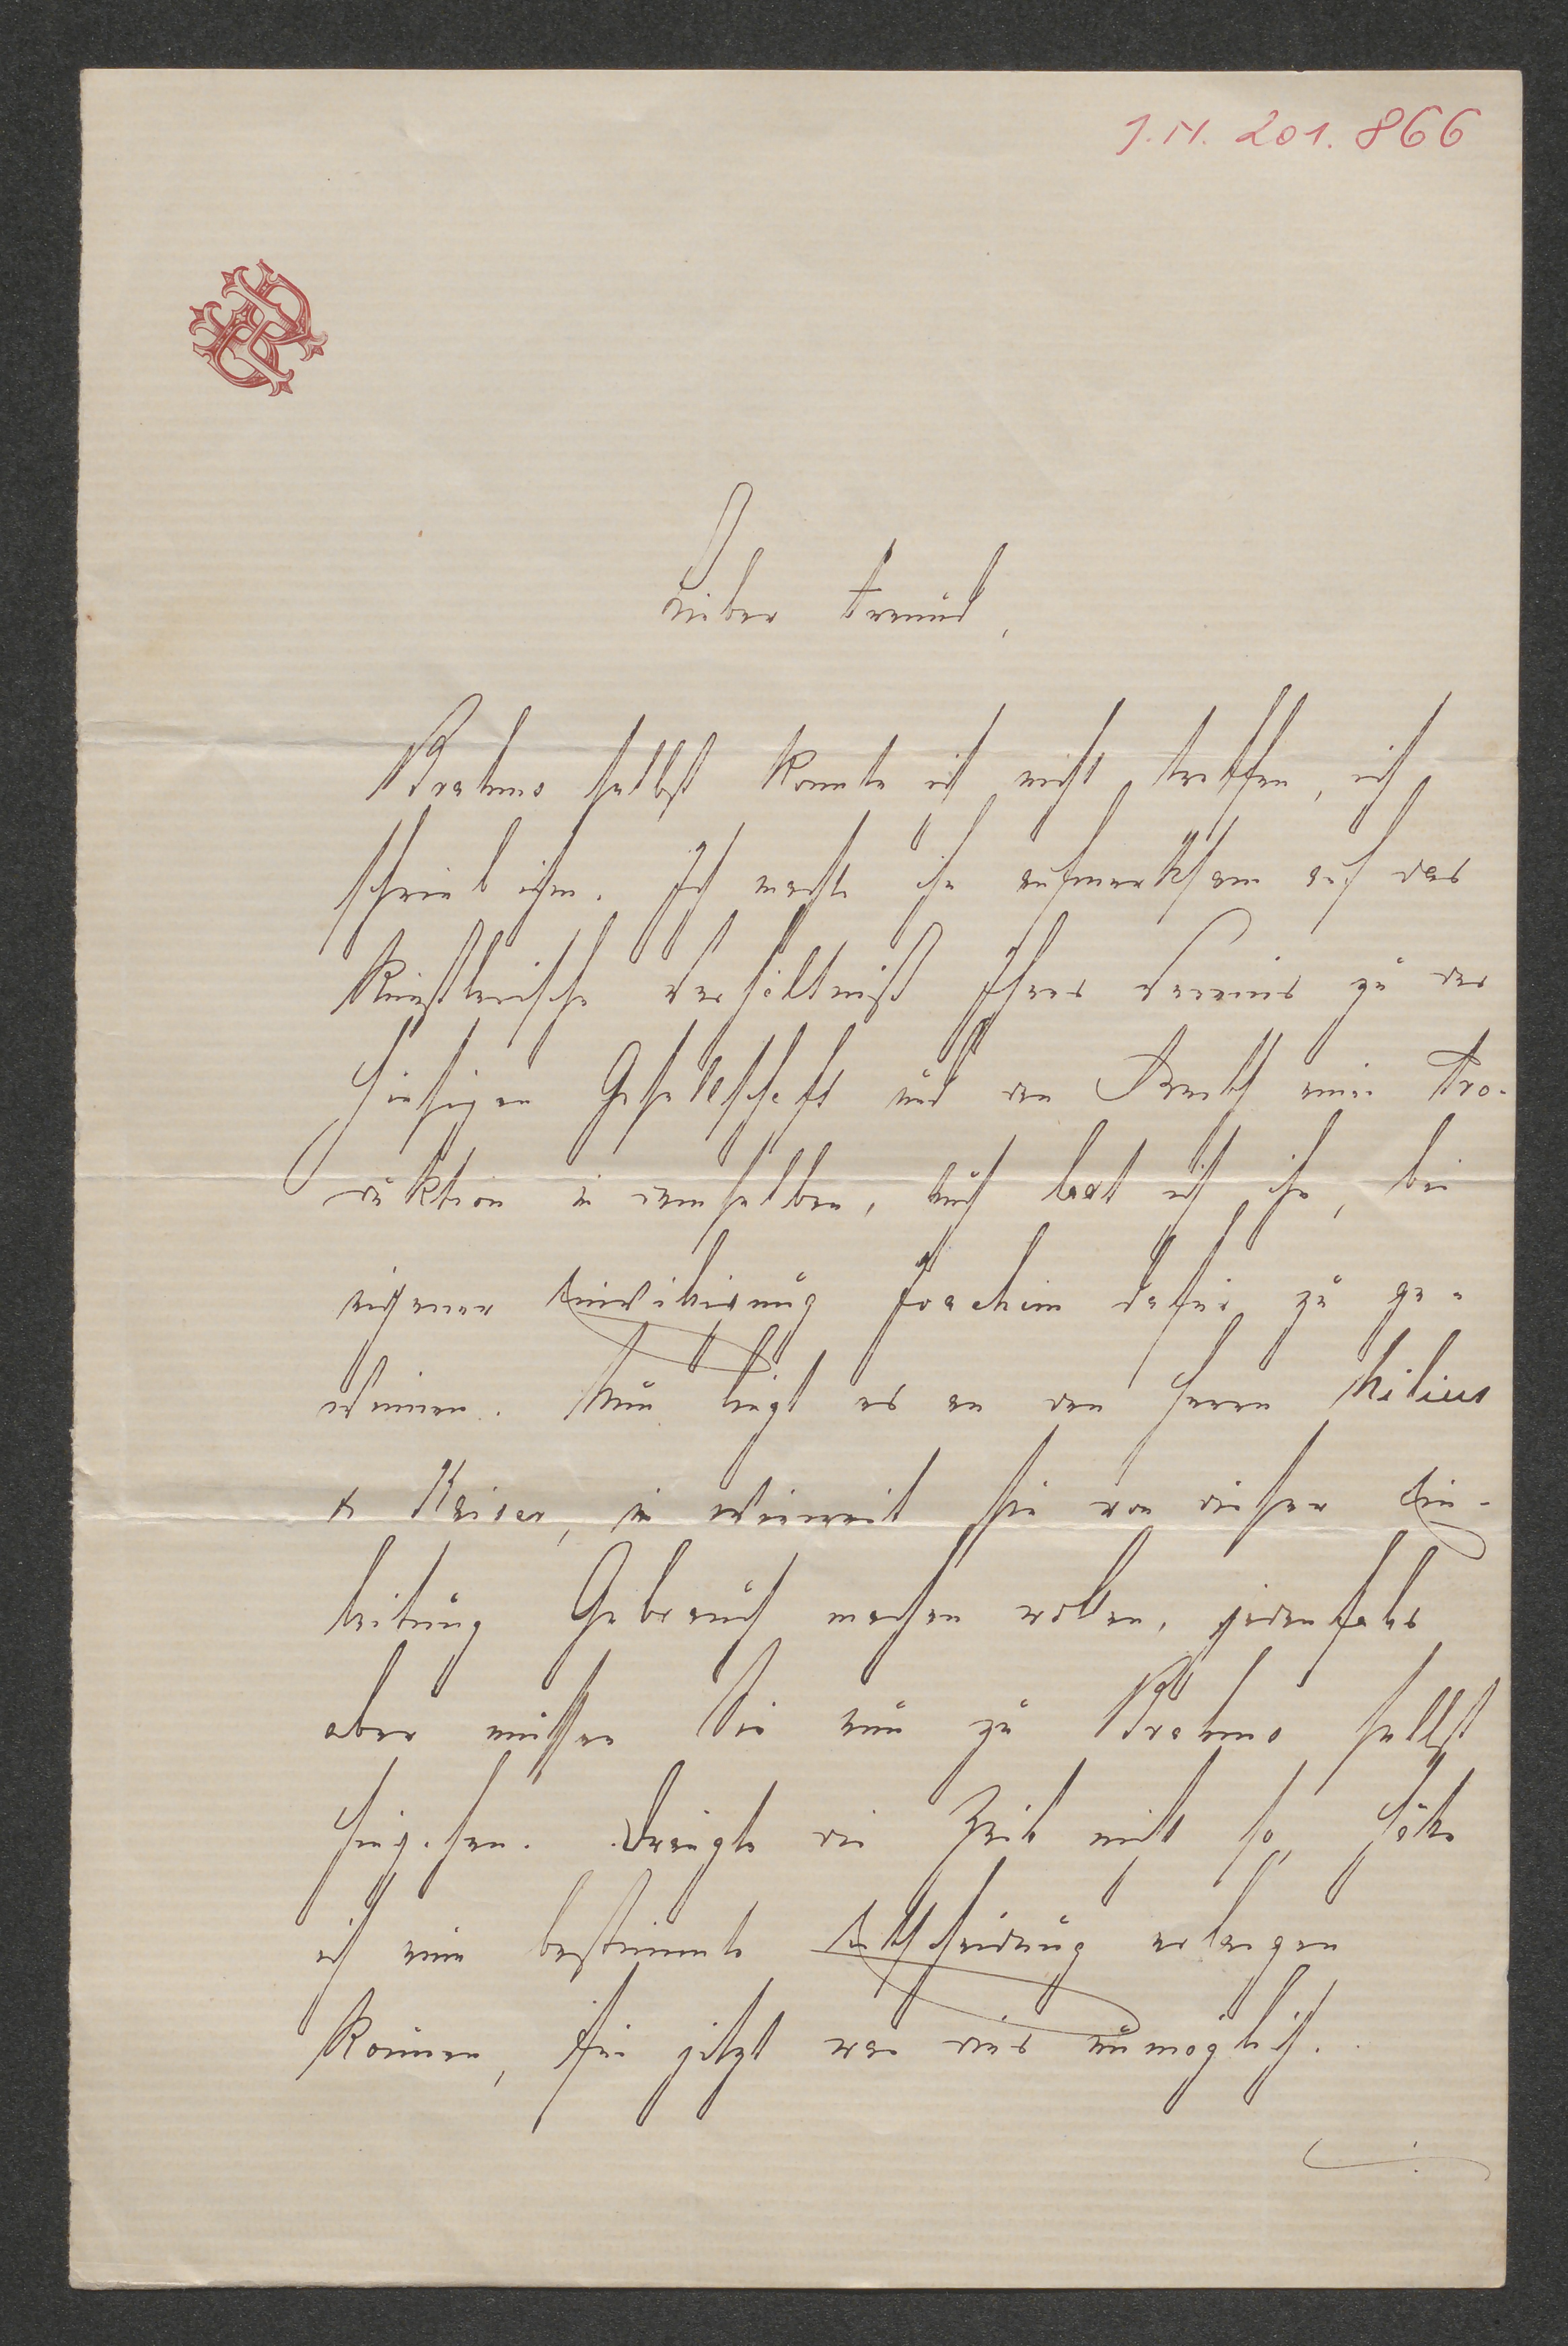 J.N. 201.866
Lieber Freund,
Brahms selbst konnte ich nicht treffen, ich
schrieb ihm. Ich machte ihn aufmerksam auf das
künstlerische Verhältniß Ihres Vereins zu der
hiesigen Gesellschaft und den Werth einer Pro-
duktion in demselben, auch bat ich ihn, bei
eigener Einwilligung Joachim dafür zu ge-
winnen. Nun liegt es an den Herrn
& Kaiser, in wieweit sie von dieser Ein-
leitung Gebrauch machen wollen, jedenfalls
aber müssen Sie nun zu Brahms selbst
hingehen. Drängte die Zeit nicht so, hätte
ich eine bestimmte Entscheidung erlangen
können, für jetzt war dies unmöglich.